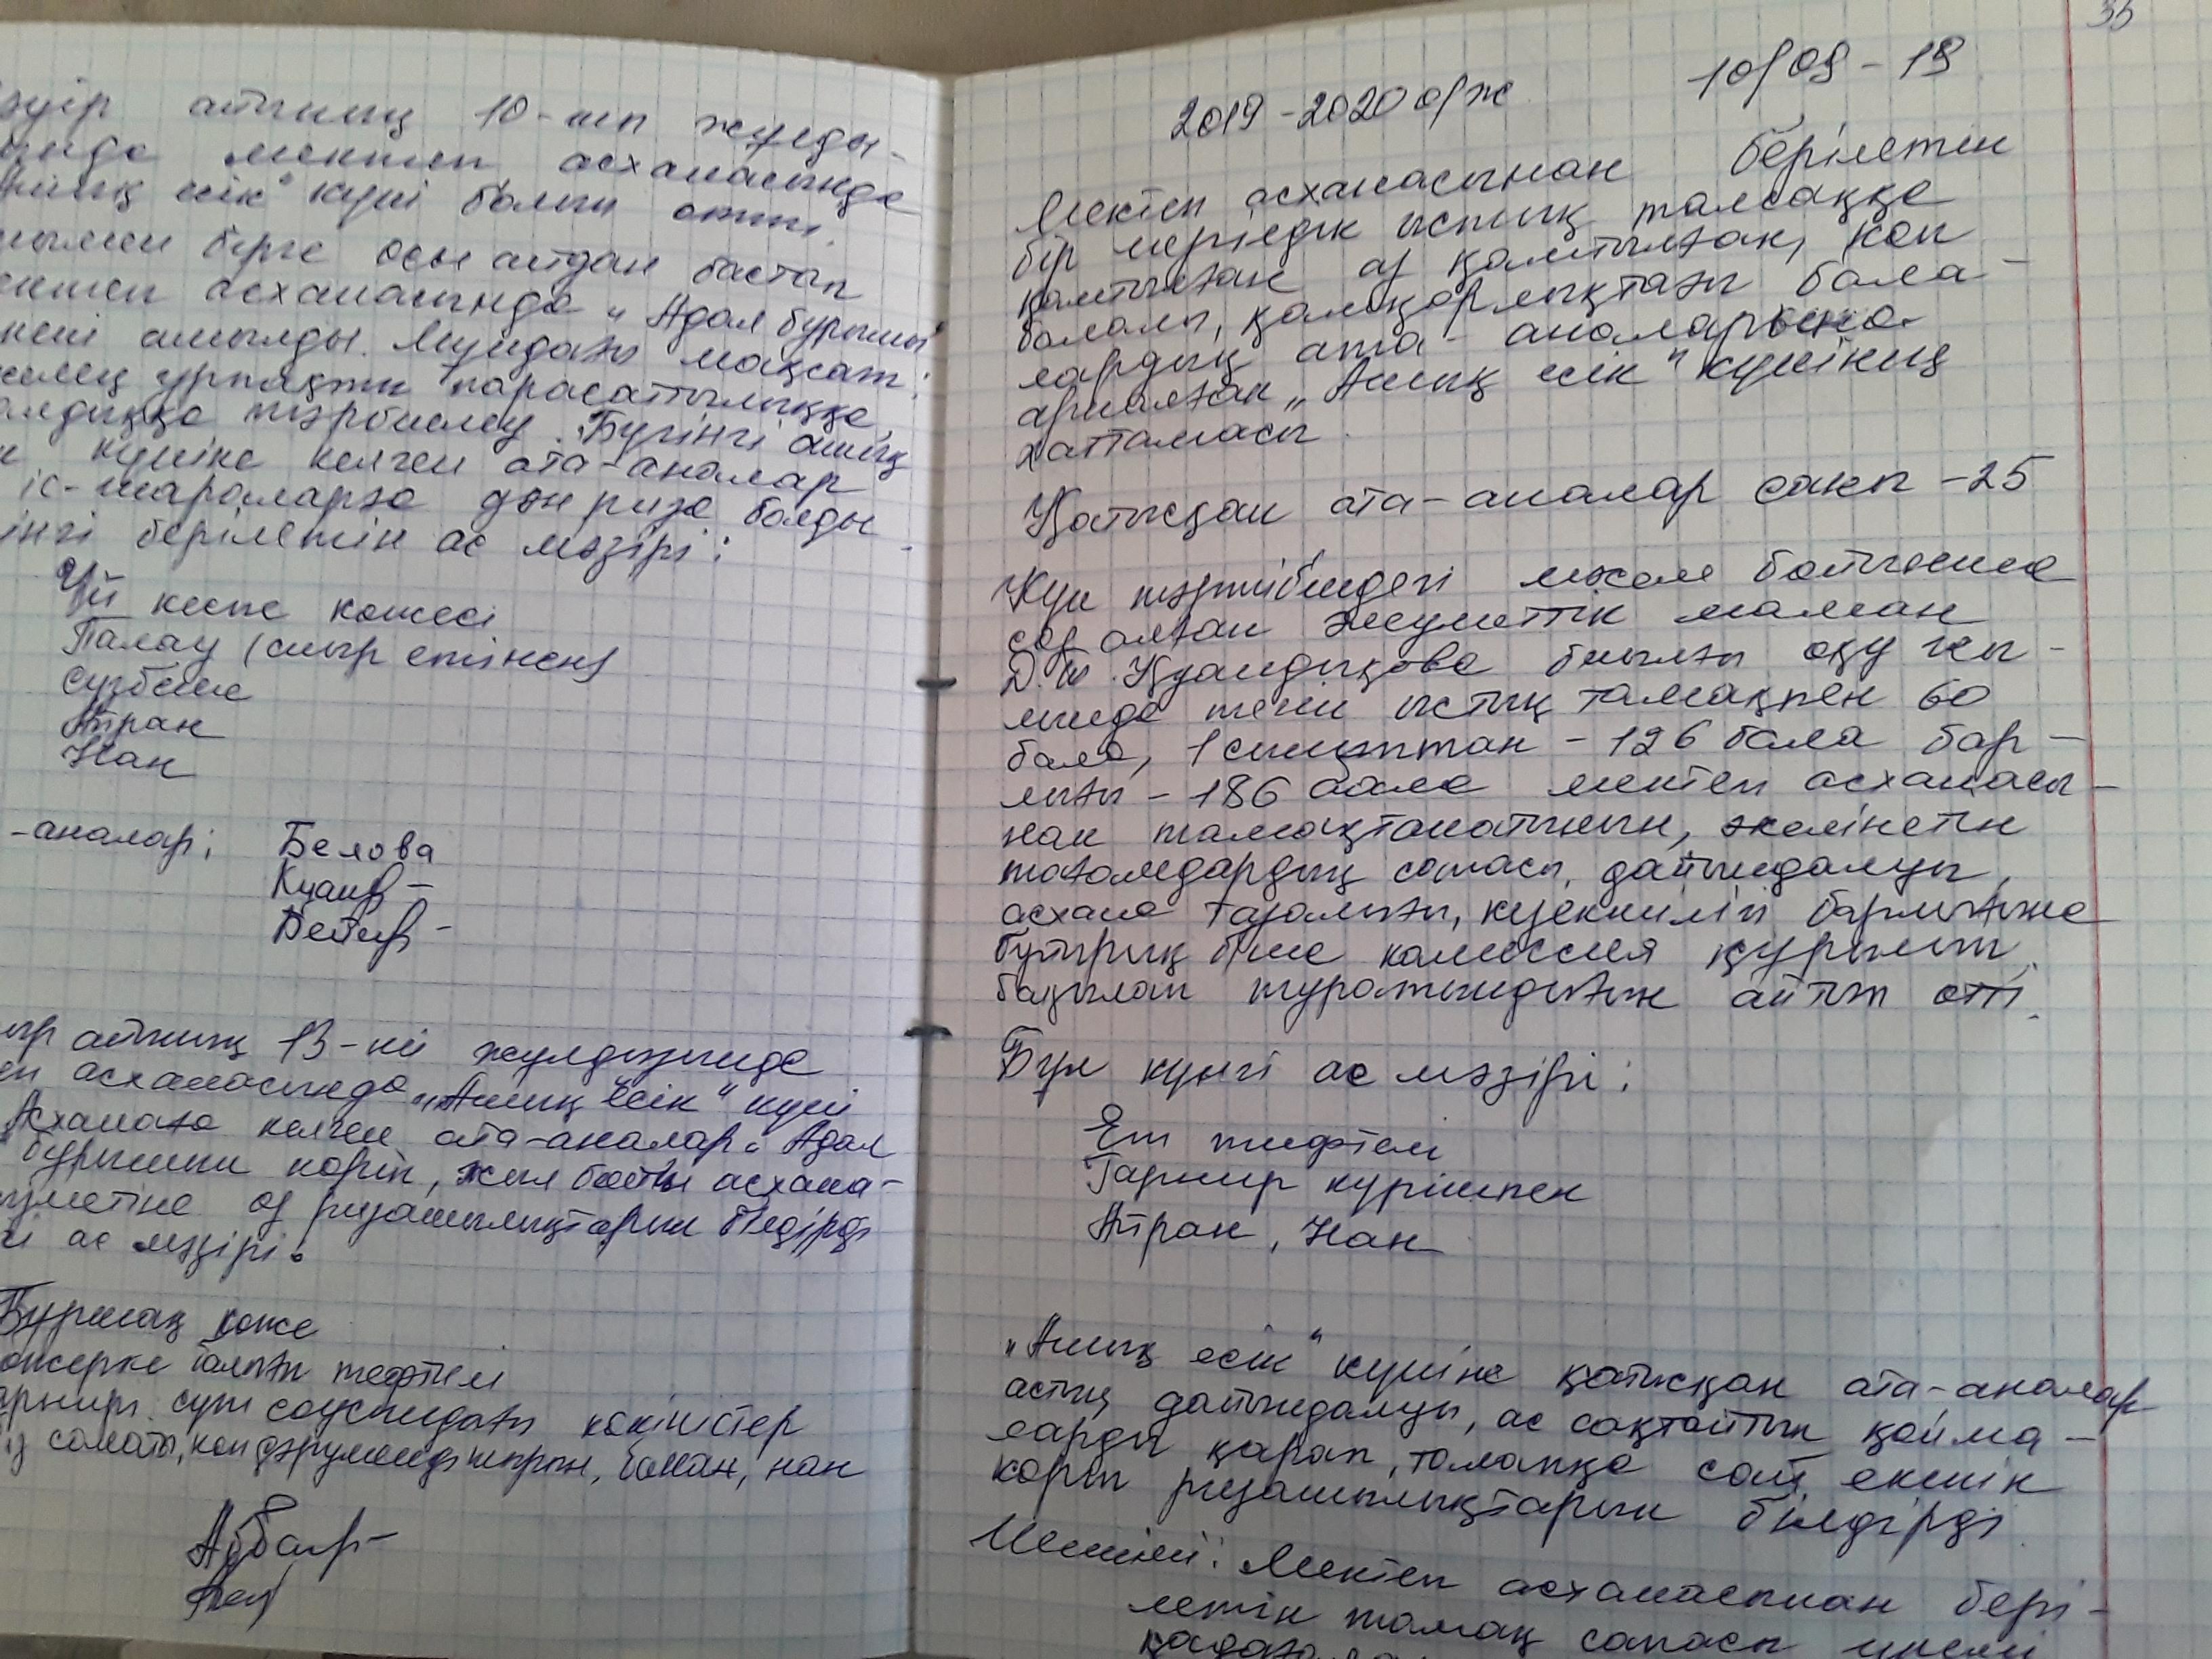 әуір айының 10-шы жұлды-
ында мектеп асханасында
Ашық есік" күні болып өтті.
ымен бірге осы айдан бастап
ектеп асханасында „Адал бұрышы"
кені ашылды. Мұндағы мақсат:
келең ұрпақты парасаттылыққа,
алдыққа тәрбиелеу. Бүгінгі ашық
к күніне келген ата-аналар
іс-шараларға дән риза болды.
інгі берілетін ас мәзірі:
Үй кеспе көжесі
Палау (сиыр етінен)
Сүзбеше
Айран
Нан
-аналар: Белова
ыр айының 13-ші жұлдызында
еп асханасында „Ашық есік" күні
Асханаға келген ата-аналар „Адал
бұрышын көріп, жыл бойғы асхана-
ызметіне өз ризашылықтарын білдірді
гі ас мәзірі:
Бұршақ көже
өжерке балығы тефтелі
арнир: сүт соусындағы көкіністер
із салаты, көп дәрумендә шырын, банан, нан
35
2019-2020 о/ж 10/09-19
Мектеп асханасынан берілетін
бір мерзімдік ыстық тамаққа
қамтылған аз қамтылған, көп
балалы, қамқорлықтағы бала-
лардың ата-аналарына
арналған „Ашық есік" күнінің
хаттамасы.
Қатысқан ата-аналар саны -25
Күн тәртібіндегі мәселе бойынша
сөз алған әлеуметтік маман
Д.Ш. Қуандықова биылғы оқу жы-
лында тегін ыстық тамақпен 60
бала, 1 сыныптан - 126 бала бар-
лығы - 186 бала мектеп асханасы-
нан тамақтанатынын, әкелінетін
тағамдардың сапасы, дайындалуы,
асхана тазалығы, күзекшілігі барлығына
бұйрық б/ша комиссия құрылып,
бақылап тұратындығын айтып өтті.
Бұл күнгі ас мәзірі:
Ет тифтелі
Гарнир күрішпен
Айран, Нан
„Ашық есік" күніне қатысқан ата-аналар
астың дайындалуы, ас сақтайтын қойма-
ларды қарап, талапқа сай екенін
көріп ризашылықтарын білдірді.
Шешімі: Мектеп асханасынан бері-
летін тамақ сапасы үнемі
қадағала